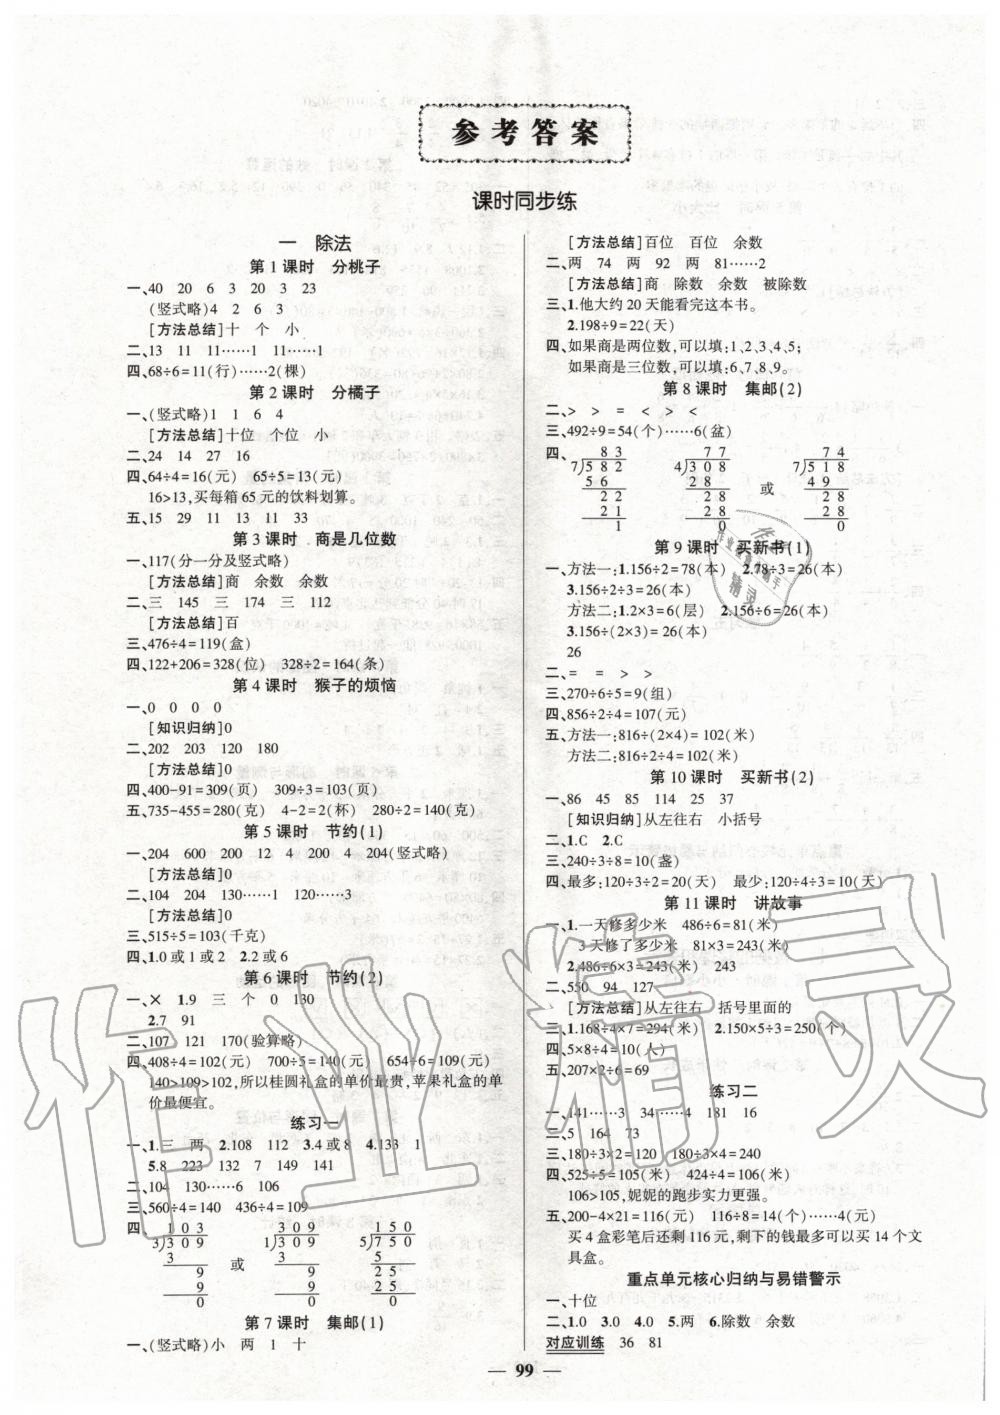 参考答案
课时同步练
一 除法
第1课时 分桃子
一、40 20 6 3 20 3 23
(竖式略)4 2 6 3
[方法总结]十 个 小
二、13 11 11……1 11……1
四、68÷6=11(行)……2(棵)
第2课时 分橘子
一、(竖式略)1 1 6 4
[方法总结]十位 个位 小
二、24 14 27 16
四、64÷4=16(元) 65÷5=13(元)
16>13,买每箱65元的饮料划算。
五、15 29 11 13 11 33
第3课时 商是几位数
一、117(分一分及竖式略)
[方法总结]商 余数 余数
二、三 145 三 174 三 112
[方法总结]百
三、476÷4=119(盒)
四、122+206=328(位) 328÷2=164(条)
第4课时 猴子的烦恼
一、0 0 0 0
[知识归纳]0
二、202 203 120 180
[方法总结]0
四、400-91=309(页) 309÷3=103(页)
五、735-455=280(克) 4-2=2(杯) 280÷2=140(克)
第5课时 节约(1)
一、204 600 200 12 4 200 4 204(竖式略)
[方法总结]0
二、104 204 130……1 120……3
[方法总结]0
三、515÷5=103(千克)
四、1.0或1或2 2.2或6
第6课时 节约(2)
一、× 1.9 三 个 0 130
2.7 91
二、107 121 170(验算略)
四、408÷4=102(元) 700÷5=140(元) 654÷6=109(元)
140>109>102,所以桂圆礼盒的单价最贵,苹果礼盒的单
价最便宜。
练习一
一、1.三 两 2.108 112 3.4或8 4.133 1
5.8 223 132 7 149 141
二、104 130……6 106
三、560÷4=140 436÷4=109
四、
103 309 150
3)309 1)309 5)750
3 或 3 5
9 9 25
9 9 25
0 0 0
第7课时 集邮(1)
一、(竖式略)小 两 1 十
[方法总结]百位 百位 余数
二、两 74 两 92 两 81……2
[方法总结]商 除数 余数 被除数
三、1.他大约20天能看完这本书。
2.198÷9=22(天)
四、如果商是两位数,可以填:1、2、3、4、5;
如果商是三位数,可以填:6、7、8、9。
第8课时 集邮(2)
二、> > = < > <
三、492÷9=54(个)……6(盆)
四、
83 77 74
7)582 4)308 7)518
56 28 或 49
22 28 28
21 28 28
1 0 0
第9课时 买新书(1)
一、方法一:1.156÷2=78(本) 2.78÷3=26(本)
3.156÷2÷3=26(本)
方法二:1.2×3=6(层) 2.156÷6=26(本)
3.156÷(2×3)=26(本)
26
二、= = > >
三、270÷6÷5=9(组)
四、856÷2÷4=107(元)
五、方法一:816÷(2×4)=102(米)
方法二:816÷2÷4=102(米)
第10课时 买新书(2)
一、86 45 85 114 25 37
[知识归纳]从左往右 小括号
二、1.C 2.C
三、240÷3÷8=10(盏)
四、最多:120÷3÷2=20(天) 最少:120÷4÷3=10(天)
第11课时 讲故事
一、1.一天修多少米 486÷6=81(米)
3天修了多少米 81×3=243(米)
2.486÷6×3=243(米) 243
二、550 94 127
[方法总结]从左往右 括号里面的
三、1.168÷4×7=294(米) 2.150×5÷3=250(个)
四、5×8÷4=10(人)
五、207×2÷6=69
练习二
一、141……3 34……4 181 16
二、5 164 73
三、180÷3×2=120 180÷3×4=240
四、525÷5=105(米) 424÷4=106(米)
106>105,妮妮的跑步实力更强。
五、200-4×21=116(元) 116÷8=14(个)……4(元)
买4盒彩笔后还剩116元,剩下的钱最多可以买14个文
具盒。
重点单元核心归纳与易错警示
一、十位
二、1.0 3.0 4.0 5.两 6.除数 余数
对应训练 36 81
99
作业精灵